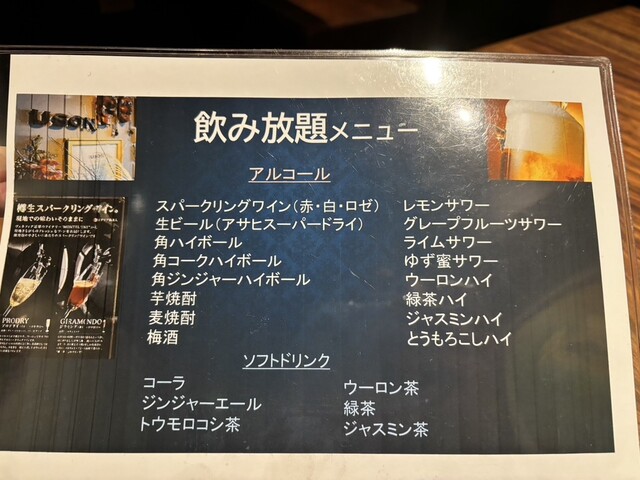 飲み放題メニュー
アルコール
スパークリングワイン(赤・白・ロゼ)
生ビール(アサヒスーパードライ)
角ハイボール
角コークハイボール
角ジンジャーハイボール
芋焼酎
麦焼酎
梅酒
レモンサワー
グレープフルーツサワー
ライムサワー
ゆず蜜サワー
ウーロンハイ
緑茶ハイ
ジャスミンハイ
とうもろこしハイ
ソフトドリンク
コーラ
ジンジャーエール
トウモロコシ茶
ウーロン茶
緑茶
ジャスミン茶
樽生スパークリングワイン。
現地での味わいそのままに
PRODRY
GIRAMONDO